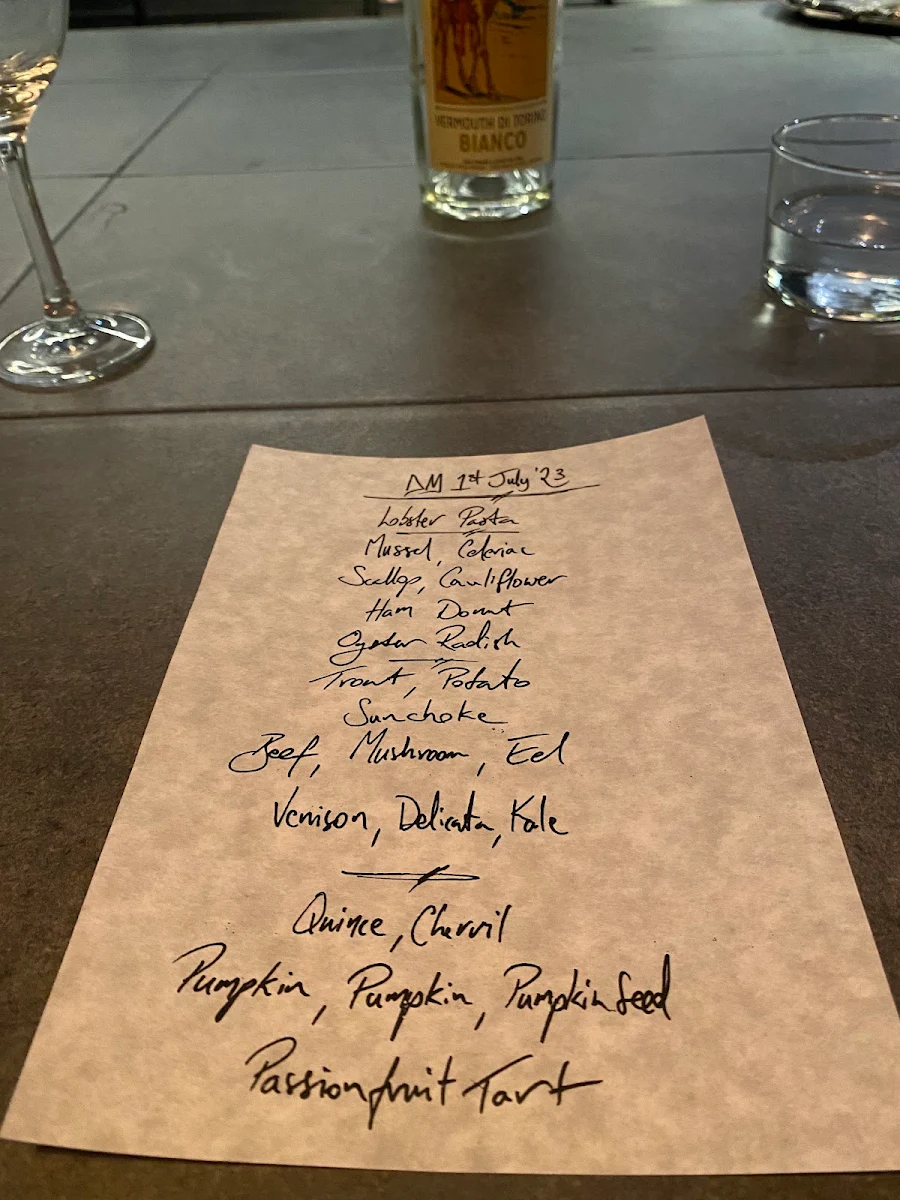 VERMOUTH DI TORINO
BIANCO
DM 1st July '23
Lobster Pasta
Mussel, Celeriac
Scallop, Cauliflower
Ham Donut
Oyster Radish
Trout, Potato
Sunchoke
Beef, Mushroom, Eel
Venison, Delicata, Kale
Quince, Chervil
Pumpkin, Pumpkin, Pumpkin Seed
Passionfruit Tart